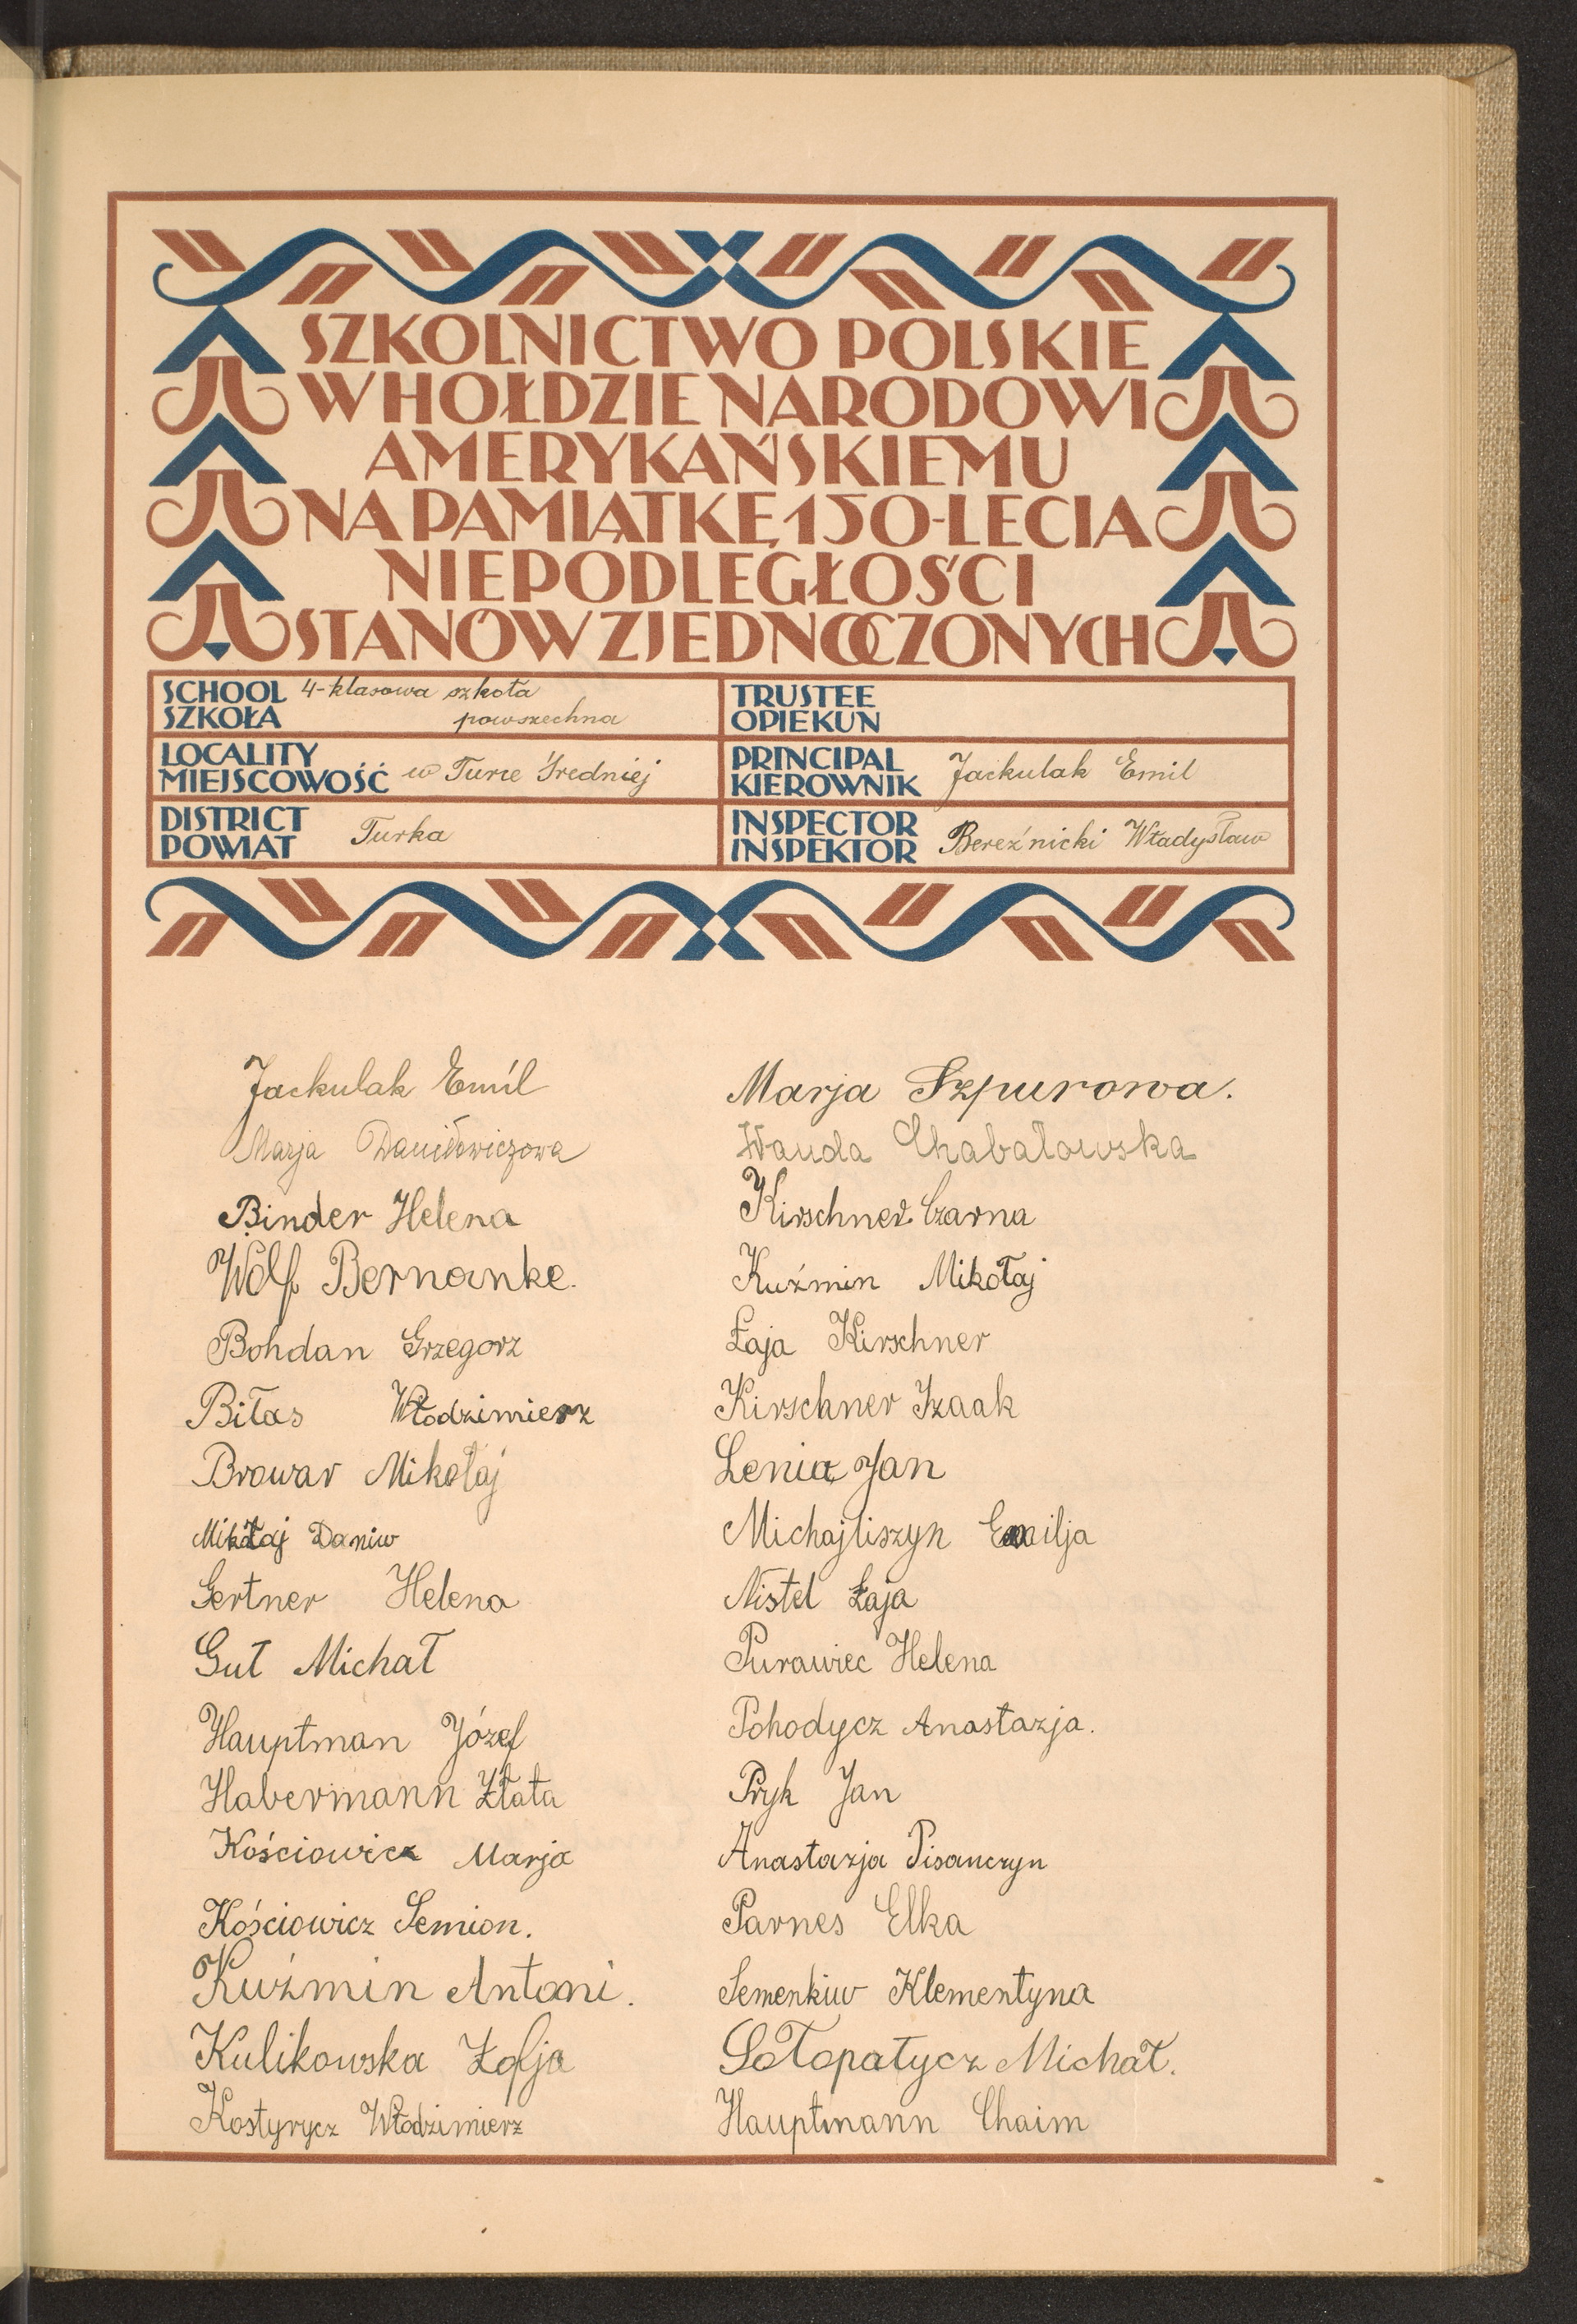 SZKOLNICTWO POLSKIE
W HOŁDZIE NARODOWI
AMERYKAŃSKIEMU
NA PAMIĄTKĘ 150-LECIA
NIEPODLEGŁOŚCI
STANÓW ZJEDNOCZONYCH
SCHOOL SZKOŁA 4-klasowa szkoła powszechna
TRUSTEE OPIEKUN
LOCALITY MIEJSCOWOŚĆ w Turce Średniej
PRINCIPAL KIEROWNIK Jackulak Emil
DISTRICT POWIAT Turka
INSPECTOR INSPEKTOR Bereźnicki Władysław
Jackulak Emil
Marja Daniłowiczowa
Binder Helena
Wolf Bernanke.
Bohdan Grzegorz
Biłas Włodzimierz
Browar Mikołaj
Mikołaj Daniw
Gertner Helena
Guł Michał
Hauptman Józef
Habermann Złata
Kościowicz Marja
Kościowicz Semion.
Kuźmin Antoni.
Kulikowska Zofja
Kostyrycz Włodzimierz
Marja Szpurowa.
Wanda Chabałowska
Kirschner Czarna
Kuźmin Mikołaj
Łaja Kirschner
Kirschner Izaak
Lenia Jan
Michajliszyn Emilja
Nistel Łaja
Purawiec Helena
Pohodycz Anastazja.
Pryk Jan
Anastazja Pisanczyn
Parnes Elka
Semenkiw Klementyna
Sołopatycz Michał.
Hauptmann Chaim